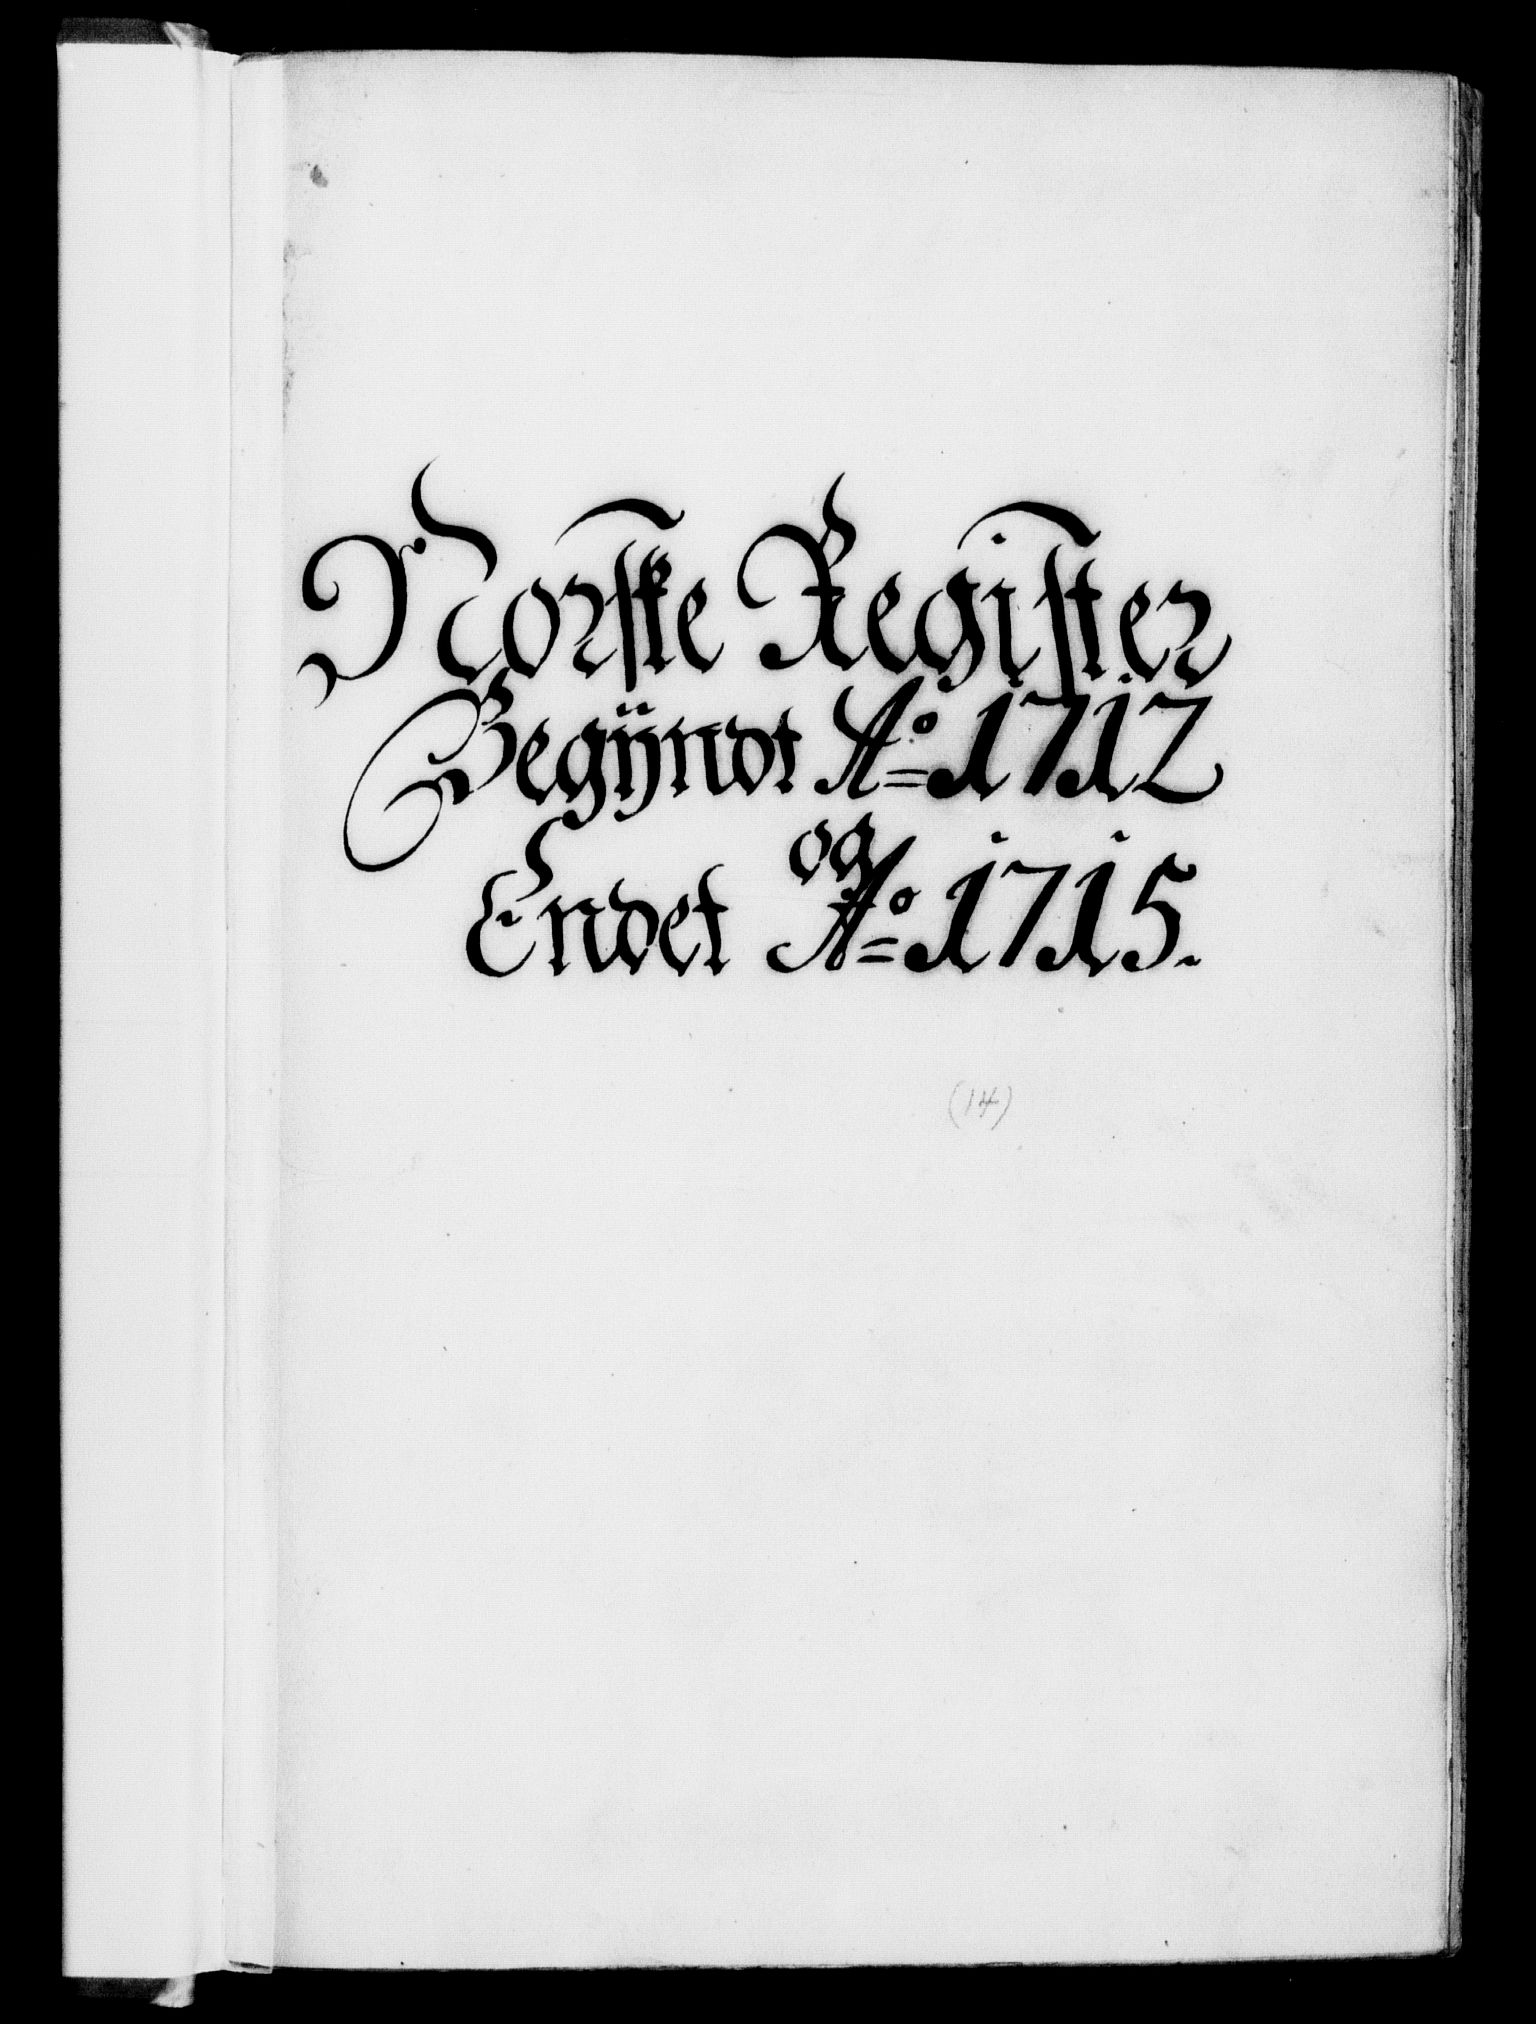 Norske Register
Begÿndt Ao. 1712
og
Endet Ao. 1715.
(14)